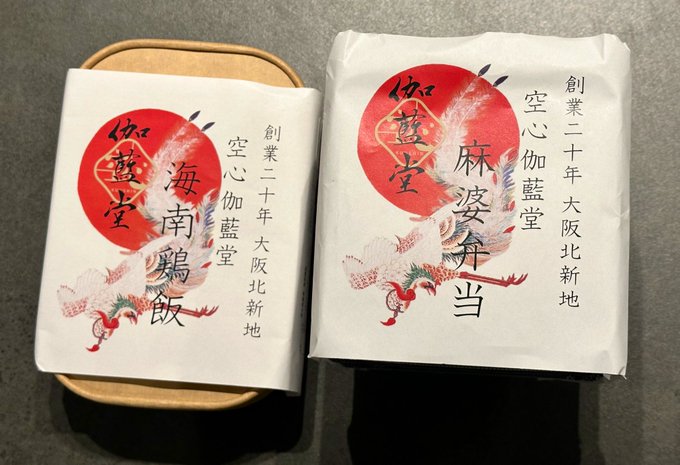 創業二十年 大阪北新地
空心伽藍堂
海南鶏飯
伽藍堂
創業二十年 大阪北新地
空心伽藍堂
麻婆弁当
伽藍堂